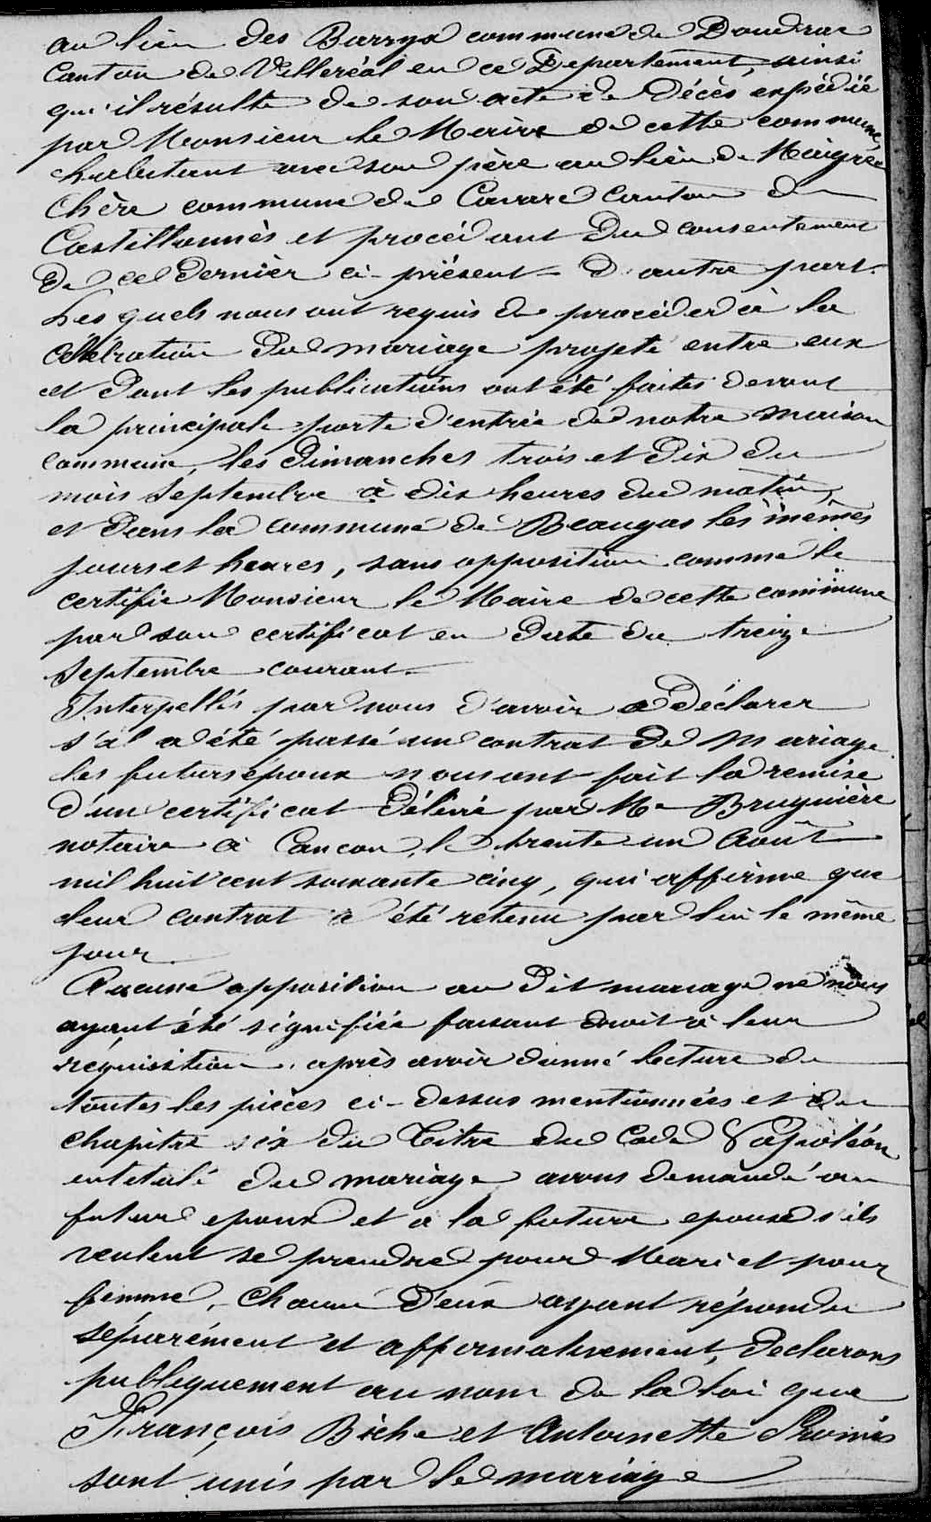 au lieu des Barrys commune de Doudrac
Canton de Villeréal en ce Département, ainsi
qu'il résulte de son acte de Décès expédié
par Monsieur le Maire de cette commune,
habitant avec son père au lieu de Maigre
Chère commune de Cavarc Canton de
Castillonnès et procédant Du consentement
De ce dernier ci-présent D'autre part.
Les quels nous ont requis de procéder à la
célébration Du mariage projeté entre eux
et Dont les publications ont été faites devant
la principale porte d'entrée de notre maison
commune, les Dimanches trois et Dix du
mois Septembre à dix heures du matin,
et Dans la commune de Beaugas les mêmes
jours et heures, sans opposition comme le
certifie Monsieur le Maire de cette commune
par son certificat en Date du treize
Septembre courant.
Interpellés par nous d'avoir a Déclarer
s'il a été passé un contrat De Mariage
les futurs époux nous ont fait la remise
d'un certificat Délivré par Me Bruguière
notaire à Cancon, le trente un Août
mil huit cent soixante cinq, qui affirme que
leur contrat a été retenu par lui le même
jour.
Aucune opposition au Dit mariage ne nous
ayant été signifiée faisant droit à leur
réquisition, après avoir donné lecture de
toutes les pièces ci-dessus mentionnées et du
chapitre six du Titre du Code Napoléon
intitulé du mariage avons demandé au
futur epoux et a la future epouse s'ils
veulent se prendre pour Mari et pour
femme, chacun d'eux ayant répondu
séparément et affirmativement, Declarons
publiquement au nom de la loi que
François Biche et Antoinette
sont unis par le mariage